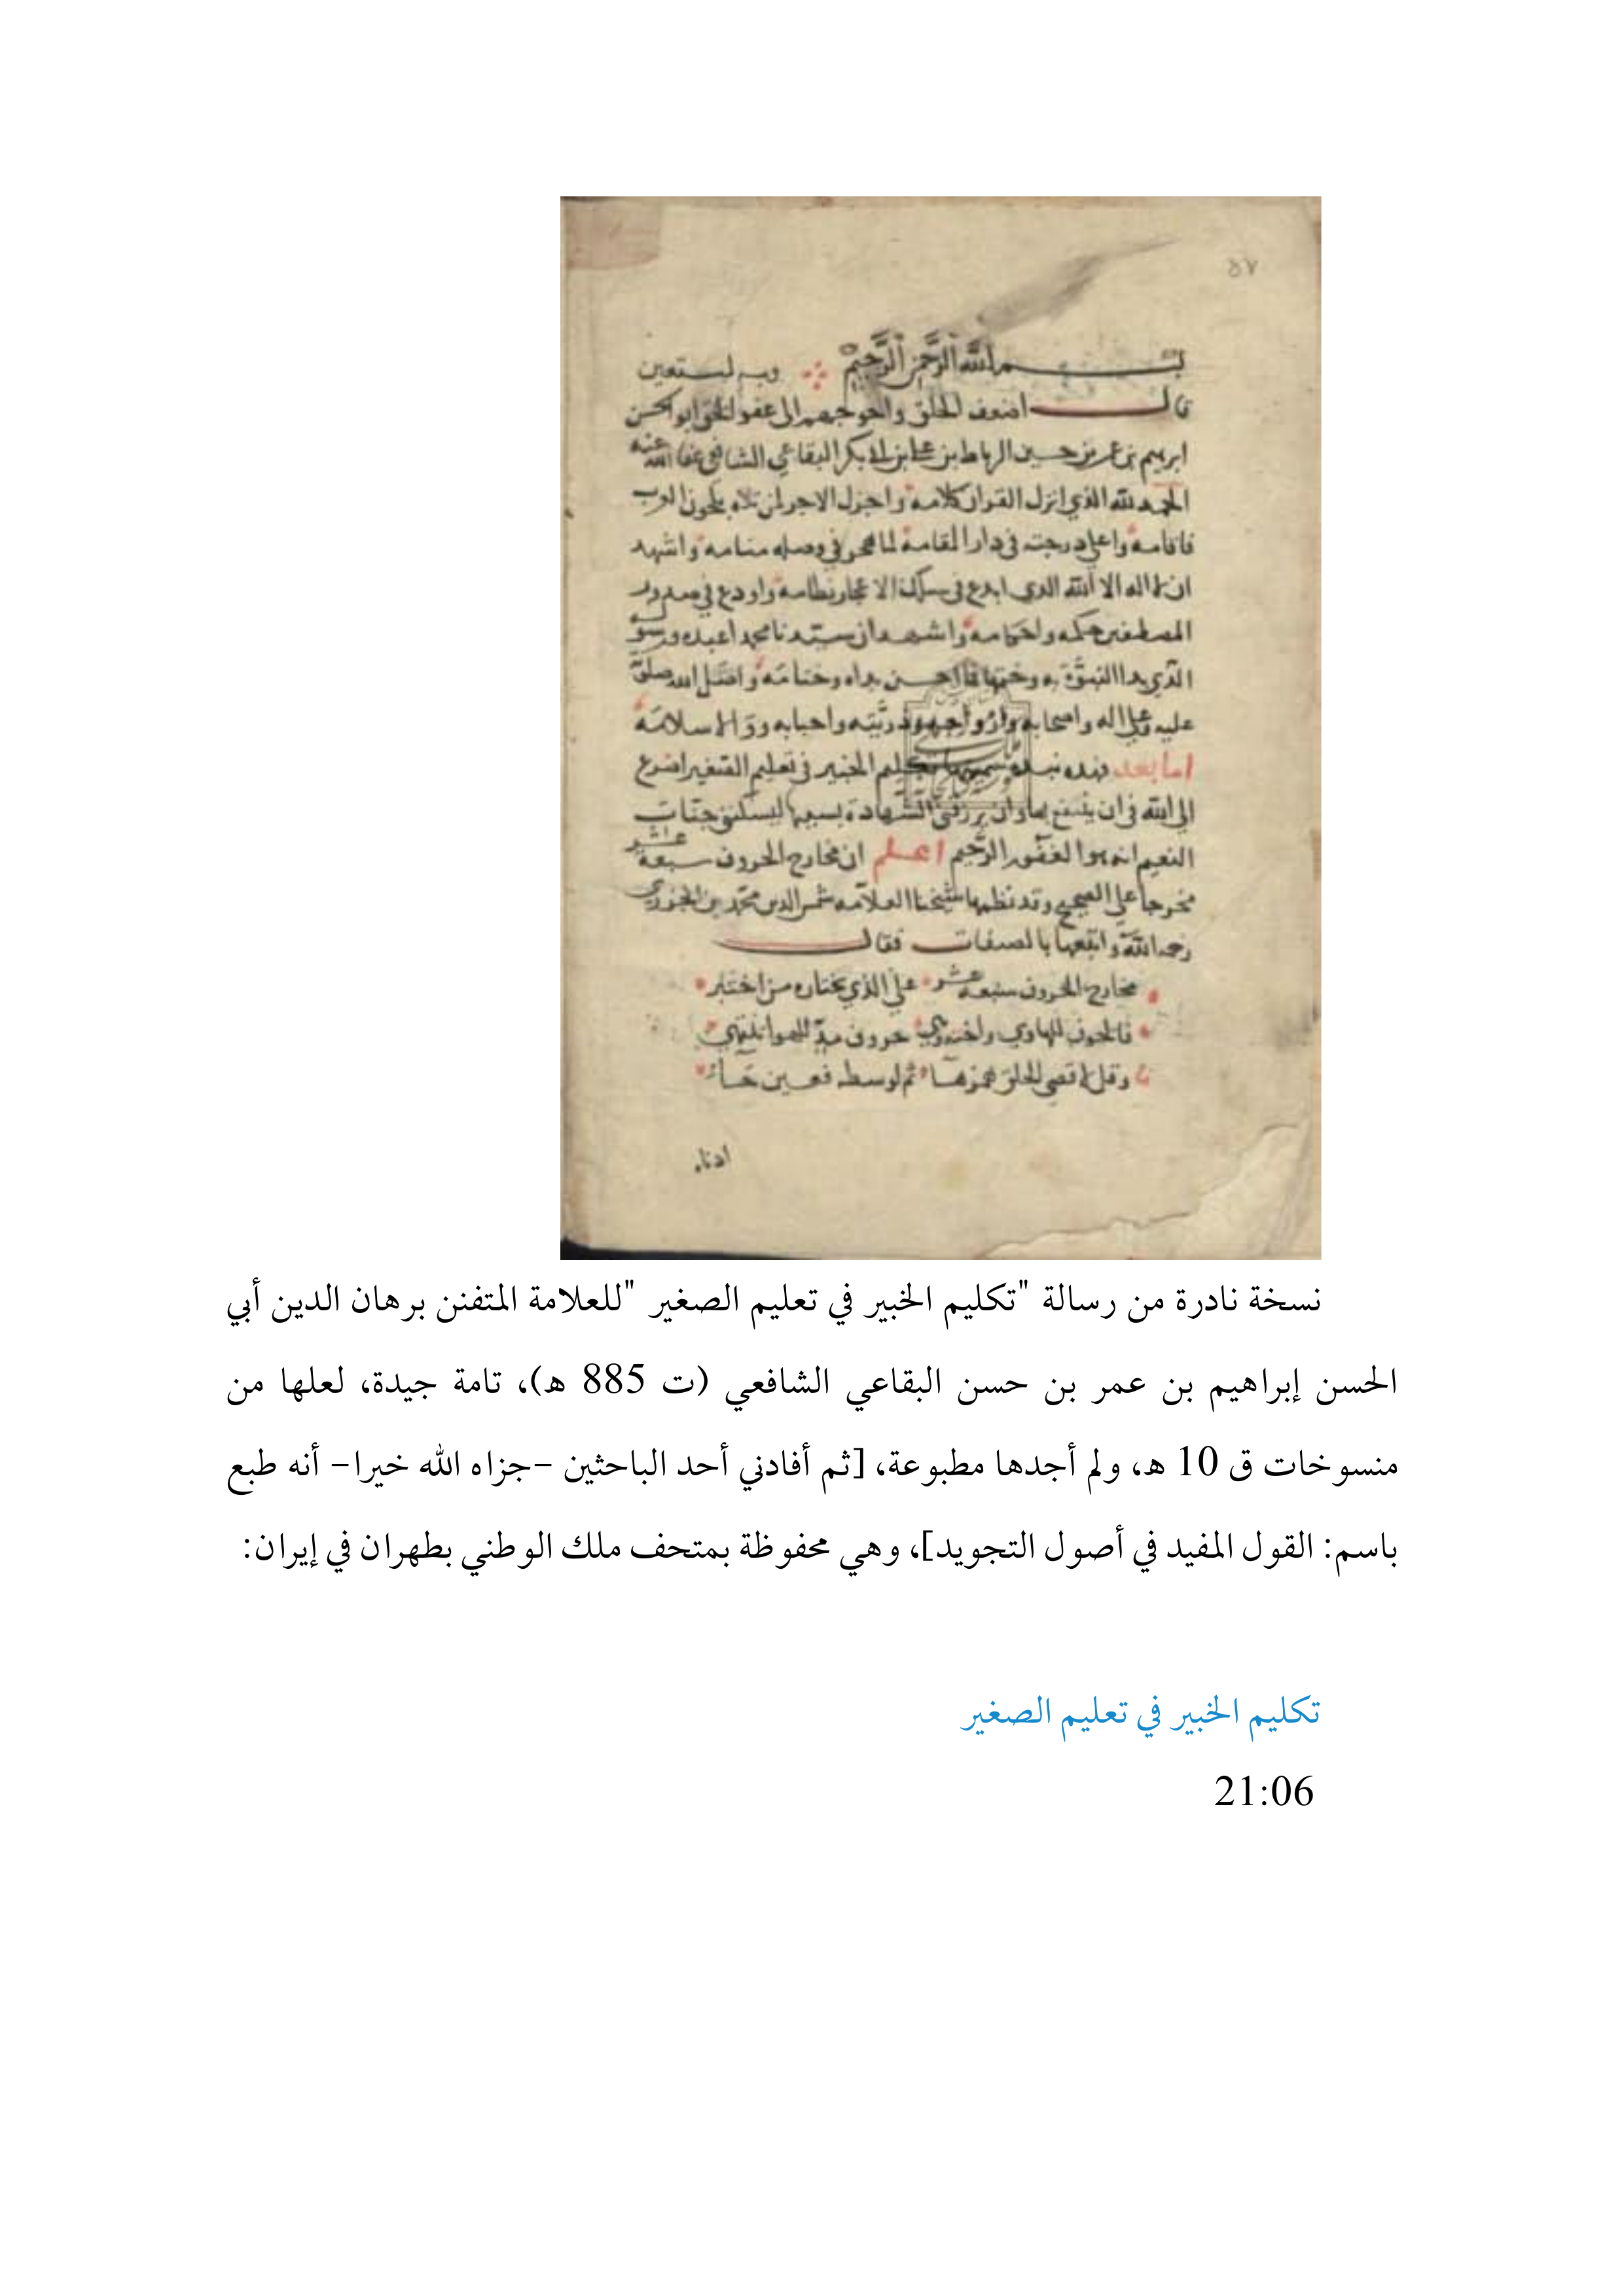 ٥٧
بسم الله الرحمن الرحيم وبه نستعين
قال اضعف الخلق واحوجهم الى عفو الحق ابو الحسن
ابرهيم بن عمر بن حسن الرباط بن علي بن ابي بكر البقاعي الشافعي عفا الله عنه
الحمد لله الذي انزل القران كلامه واجزل الاجر لمن تلاه بلحون العرب
فاقامه واعلى درجته في دار المقامة لما هجر في وصله منامه واشهد
ان لا اله الا الله الذي ابدع في سلك الاعجاز نظامه واودع في صدور
المصطفين حكمه واحكامه واشهد ان سيدنا محمدا عبده ورسوله
الذي بدا النبوة به وختمها فا احسن بداه وختامه وافضل الله صلى
عليه وعلى اله واصحابه وازواجه وذريته واحبابه
اما بعد فهذه نبذة سميتها تكليم الخبير في تعليم الصغير اضرع
الى الله في ان ينفع بها وان يرزقني الشهادة بسببها ليسكنني جنات
النعيم انه هو الغفور الرحيم اعلم ان مخارج الحروف سبعة عشر
مخرجا على الصحيح وقد نظمها شيخنا العلامه شمس الدين محمد بن الجزري
رحمه الله واتبعها بالصفات فقال
مخارج الحروف سبعة عشر على الذي يختاره من اختبر
فالجوف للهاوي واختيه وهي حروف مد للهوا تنتهي
وقل لاقصى الحلق همز هاء ثم لوسطه فعين حاء
ادناه
نسخة نادرة من رسالة "تكليم الخبير في تعليم الصغير "للعلامة المتفنن برهان الدين أبي
الحسن إبراهيم بن عمر بن حسن البقاعي الشافعي (ت 885 هـ)، تامة جيدة، لعلها من
منسوخات ق 10 هـ، ولم أجدها مطبوعة، [ثم أفادني أحد الباحثين -جزاه الله خيرا- أنه طبع
باسم: القول المفيد في أصول التجويد]، وهي محفوظة بمتحف ملك الوطني بطهران في إيران:
تكليم الخبير في تعليم الصغير
21:06